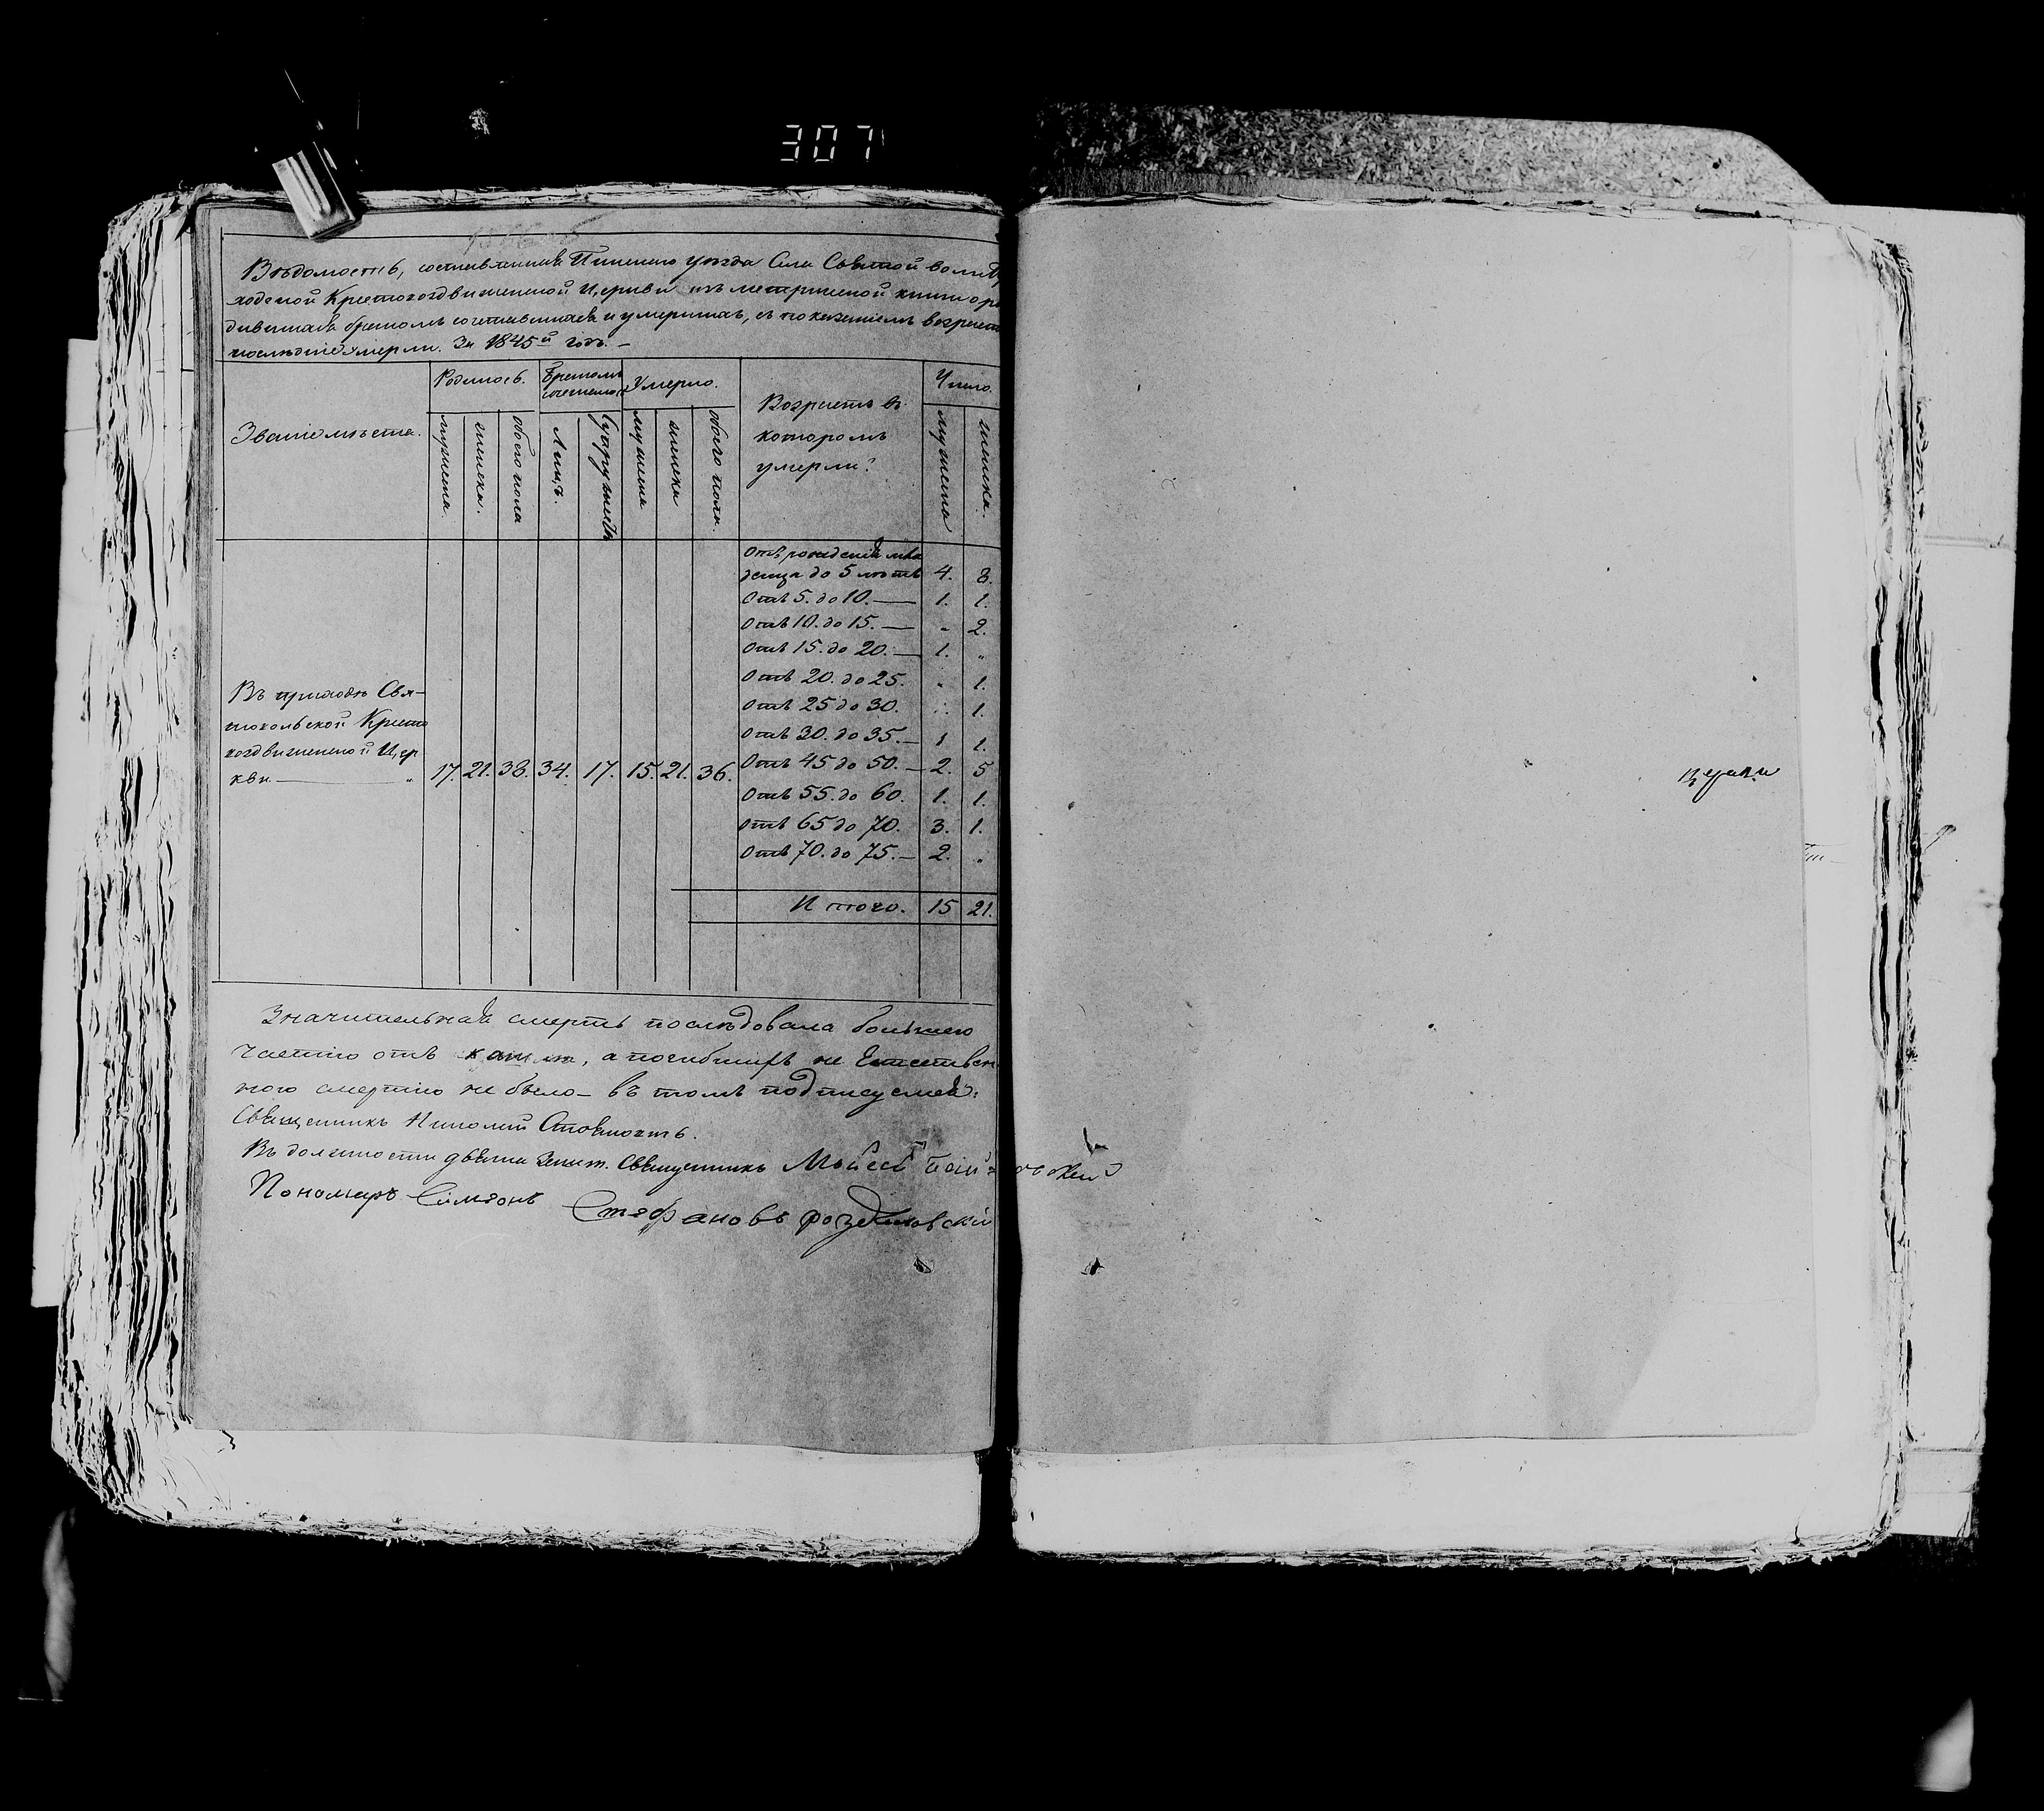 307
Вѣдомость, составленная Пинскаго уѣзда Села Святой воли При
ходской Крестовоздвиженской Церкви изъ метрической книги о ро
дившихся бракомъ сочетавшихся и умершихъ, съ показаніемъ возраста
послѣдніе умерли. За 1845й годъ. –
Званіе мѣста.
Родилось.
Бракомъ сочеталось
Умерло.
Возрастъ въ
котором
умерли?
Число.
мужеска.
женска.
обоего пола
Лицъ.
Супружествъ
мужеска
женска
обоего пола.
мужеска
женска.
Отъ рожденія мла
денца до 5 лѣтъ 4. 8.
Отъ 5. до 10. — 1. 1.
Отъ 10. до 15. — „ 2.
Отъ 15. до 20. — 1. „
Отъ 20. до 25. „ 1.
Отъ 25 до 30. „ 1.
Отъ 30. до 35. — 1 1.
Отъ 45 до 50. — 2. 5
Отъ 55. до 60. 1. 1.
Отъ 65 до 70. 3. 1.
Отъ 70. до 75. — 2. „
Въ приходѣ Свя-
товольской Кресто
воздвиженской Цер
кви. — „ 17. 21. 38. 34. 17. 15. 21. 36.
Итого. 15 21.
Значительная смерть послѣдовала большею
частію отъ кашля, а погибшихъ не Естествен
ною смертію не было – въ томъ подписуемся:
Священникъ Ипполитъ
Въ должности дьячка Священникъ
Пономарь Симеонъ Стефановъ